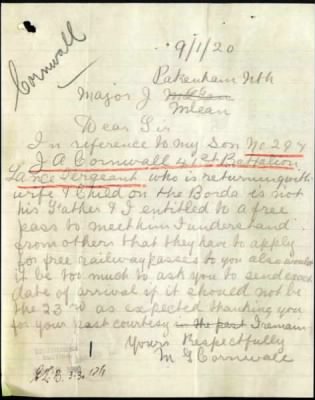 Cornwall
9/1/20
Pakenham Nth
Major J McLean
Mclean
Dear Sir
In reference to my Son No 284
J A Cornwall 41st Battalion
Lance Sergeant who is returning with
wife & Child on the Borda is not
his Father & I entitled to a free
pass to meet him I understand
from others that they have to apply
for free railway passes to you also would
it be too much to ask you to send exact
date of arrival if it should not be
the 23rd as expected thanking you
for your past courtesy in the past I remain
Yours Respectfully
M G Cornwall